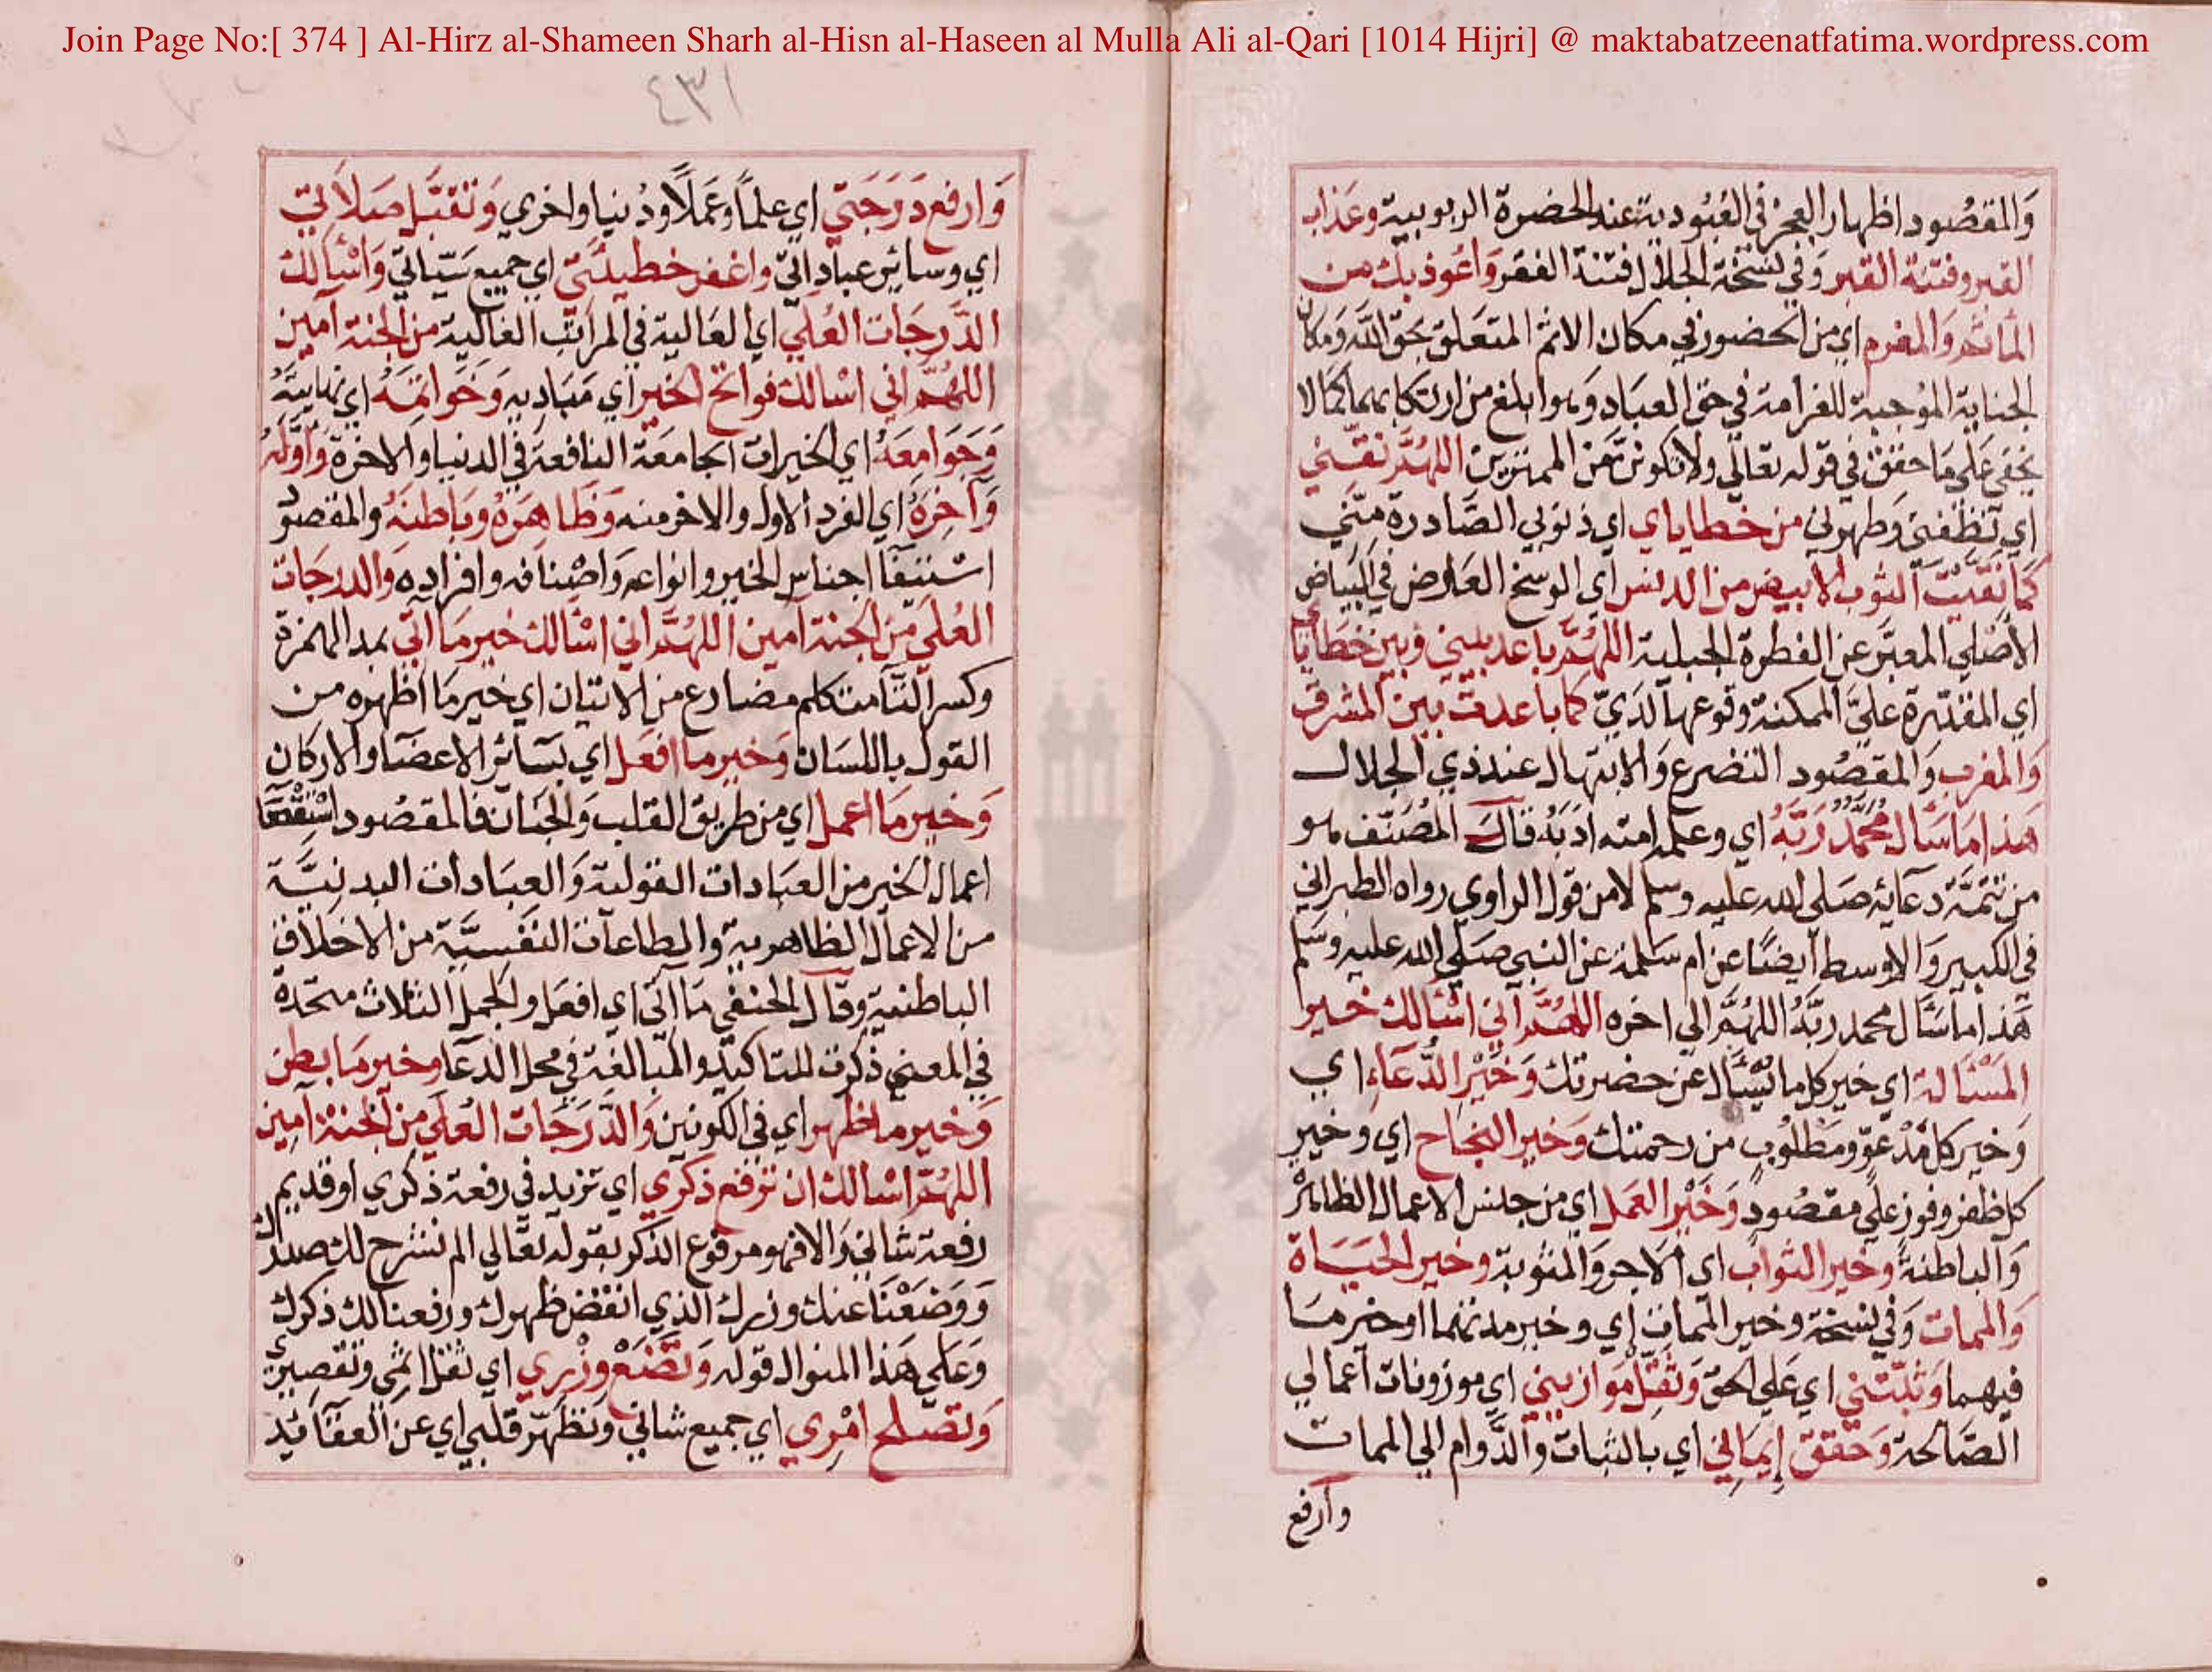 Join Page No:[ 374 ] Al-Hirz al-Shameen Sharh al-Hisn al-Haseen al Mulla Ali al-Qari [1014 Hijri] @ maktabatzeenatfatima.wordpress.com
وَالمقصُود اظهار العجز في العُبُودية عند الحضرة الربوبية وعَذاب
القبر وفتنة القبر وَفي نسخة الجلال فتنة الفقر وَاعُوذ بك من
المأثم وَالمغرم اي من الحضور في مكان الاثم المتعَلق بحق الله وَمكان
الجناية المُوجبة للغرامة في حق العبَاد وَهو ابلغ من ارتكابهما كما لا
يخفى عَلى مَا حقق في قوله تعَالي ولا تكونن مَن الممترين اللهُمّ نقّني
اي نظفني وَطهرني من خطاياي اي ذنوبي الصَّادرة مِنّي
كَمَا نَقَّيْتَ الثوب الابيض من الدنس اي الوسخ العَارض في البيَاض
الأصْلي المعبّر عن الفطرة الجبلية اللهُمّ باعد بيني وَبين خَطايَاي
اي المقدّرة عليّ الممكنة وقوعهَا لَدَيّ كما باعدت بين المشرق
وَالمغرب وَالمقصُود التضرع وَالابتهال عند ذي الجلال
هَذا مَا سَأل مُحَمَّدٌ رَبَّهُ اي وعلم امته ادَبَهُ قالَ المُصَنّف هو
من تتمَّة دعَائِه صَلي الله عليه وسلم لا من قول الراوي رواه الطبراني
في الكبير وَالاوسط ايضًا عن ام سَلمة عن النبي صَلي الله عليه وسَلم
هَذا ما سَأل محمد ربَّهُ اللهُمَّ الي اخره اللهُمَّ اني اسْالك خير
المَسْألة اي خير كل ما يُسْأل عن حضرتك وَخَيْر الدُّعَاء اي
وَخير كل مَدْعوّ ومَطلُوب من رحمتك وَخير النجَاح اي وَخير
كل ظفر وفوز عَلى مقصُود وَخَيْر العَمَل اي من جنس الاعمال الظاهرَة
وَالباطنة وخير الثواب اي الاجر وَالمثوبة وخير الحَيَاة
وَالممات وَفي نسخة وخير الممات اي وخير مدتهما او خير مَا
فيهما وَثبّتني اي عَلي الحق وَثقِّل مَوازيني اي موزونات اعمالي
الصَّالحة وَحقق إيمَاني اي بالثبات والدَّوام الي الممات
وارفع
٤٣١
وَارفع دَرَجَتي اي علمًا وعَمَلًا ودُنيا واخري وَتقبَّل صَلَاتي
اي وسائر عباداتيّ واغفر خطيئتي اي جميع سَيّئاتي وَاسْألك
الدَّرجَات العُلَي اي العَالية في المراتب الغالية من الجنة آمين
اللهُمَّ اني اسْالك فواتح الخير اي مَبَاديه وَخَواتمَهُ اي نهايتَهُ
وَجَوامِعَهُ اي الخيرات الجامعَة النافعة في الدنيا والاخرة وَاوّلَهُ
وَآخِرَهُ اي الفرد الاول والاخر منه وَظاهِرَهُ وبَاطنَهُ والمقصُود
اجناس الخير وانواعه وَاصْنافه وافراده وَالدرجَات
العُلَي مّن الجنة امين اللهُمَّ اني اسْالك خير مَا آتي بمد الهمزة
وكسر التآ متكلم مضارع من الاتيان اي خير مَا اظهره من
القول باللسَان وَخير ما افعَل اي بسَائر الاعضَا والاركان
وَخير مَا اعمل اي من طريق القلب وَالجَنان فالمقصُود اسْتقصَا
اعمال الخير من العبَادات القولية وَالعبَادات البدنيَّة
من الاعمال الظاهرية والطاعات النفسيَّة من الاخلاق
الباطنية وقال الحنفي مَا آتي اي افعَل والجمل الثلاث متحدة
في المعني ذكرت للتاكيد والمبالغة في محل الدعَا وخير مَا بطن
وَخير ما ظهر اي في الكونين وَالدَّرَجَات العُلَي من الجنة آمين
اللهُمّ اسْالك ان ترفع ذكري اي تزيد في رفعة ذكري او تديم
رفعة شاني وَالا فهو مرفوع الذكر بقوله تعَالي الم نشرح لك صدرك
وَوَضَعْنَا عنك وزرك الذي انقض ظهرك ورفعنا لك ذكرك
وَعَلي هَذا المنوال قوله وَتَضَعْ وِزْري اي ثقل اثمي وتقصيري
وَتصلح امْرِي اي جميع شاني وَتطَهّر قلبي اي عن العقائد